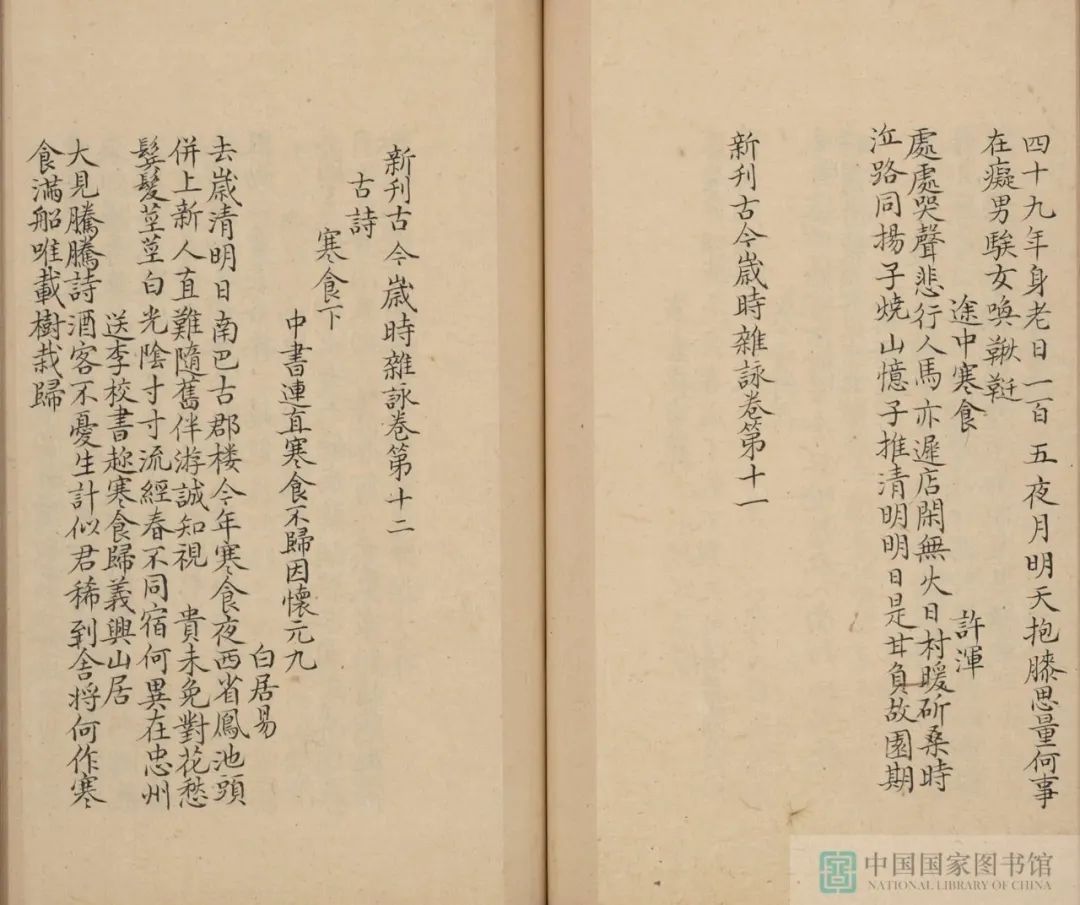 四十九年身老日一百五夜月明天抱膝思量何事
在癡男騃女喚鞦韆
途中寒食 許渾
處處哭聲悲行人馬亦遲店閑無火日村暖斫桑時
泣路同揚子燒山憶子推清明明日是甘負故園期
新刊古今歲時雜詠卷第十一
新刊古今歲時雜詠卷第十二
古詩
寒食下
中書連直寒食不歸因懷元九
白居易
去歲清明日南巴古郡樓今年寒食夜西省鳳池頭
併上新人直難隨舊伴游誠知視 貴未免對花愁
鬢髮莖莖白光陰寸寸流經春不同宿何異在忠州
送李校書趂寒食歸義興山居
大見騰騰詩酒客不憂生計似君稀到舍將何作寒
食滿船唯載樹栽歸
中国国家图书馆
NATIONAL LIBRARY OF CHINA